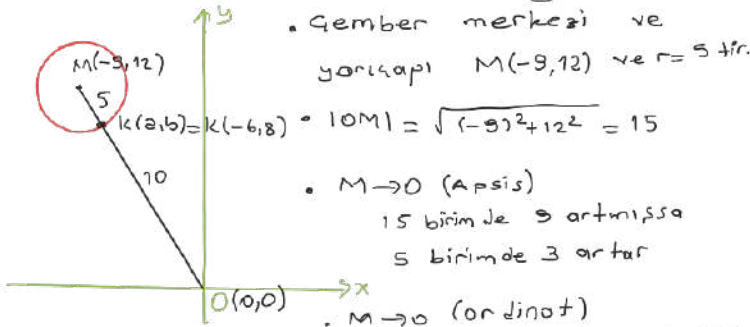 y
M(-9,12)
5
K(a,b)=K(-6,8)
10
O(0,0)
x
• Çember merkezi ve
yarıçapı M(-9,12) ve r=5 tir.
• |OM| = √(-9)²+12² = 15
• M→O (Apsis)
15 birimde 9 artmışsa
5 birimde 3 artar
• M→O (ordinat)